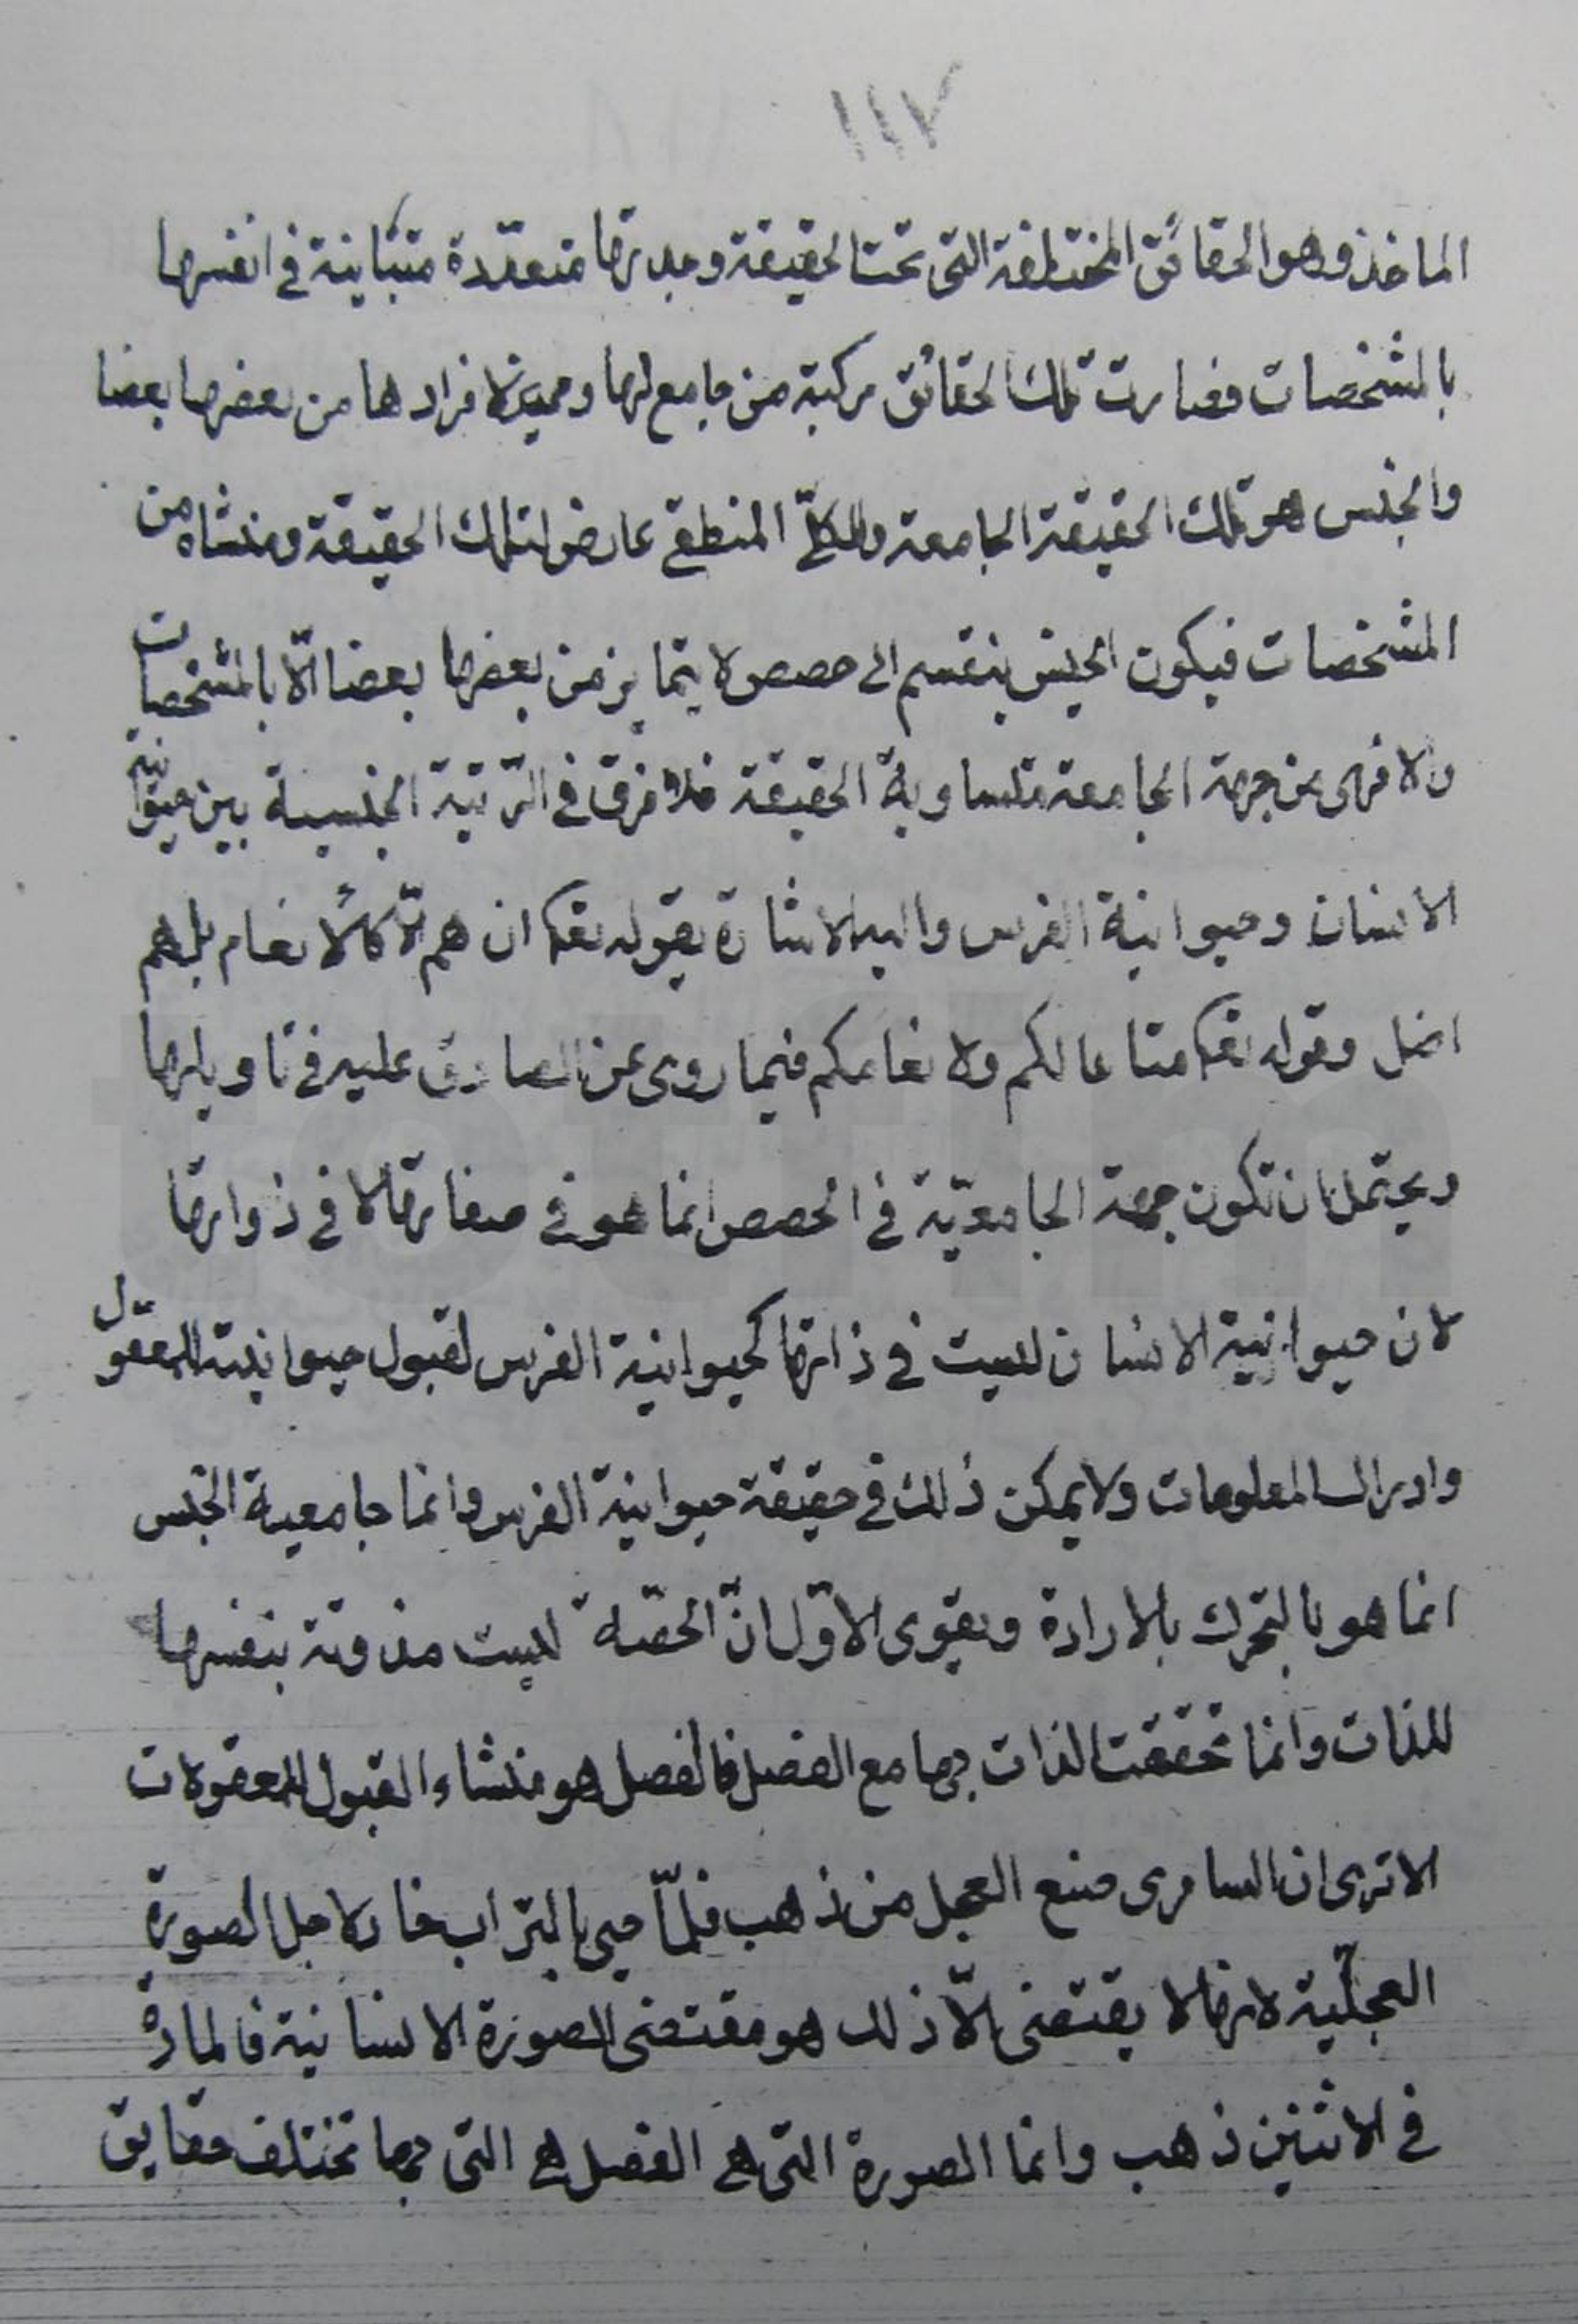 ١١٧
الماخذ وهو الحقائق المختلفة التى تحت الحقيقة وجدتها متعددة متباينة فى انفسها
بالمشخصات فصارت تلك الحقائق مركبة من جامع لها ومميز لافرادها من بعضها بعضا
والجنس هو تلك الحقيقة الجامعة والكلّى المنطقى عارض لتلك الحقيقة ومنشاه من
المشخصات فيكون الجنس ينقسم الى حصص لا يتمايز من بعضها بعضا الّا بالمشخصات
والا فهى من جهة الجامعة متساوية الحقيقة فلا فرق فى الرّتبة الجنسية بين حيوانية
الانسان وحيوانية الفرس واليه الاشارة بقوله تعالى ان هم الّا كالانعام بل هم
اضل وقوله تعالى متاعا لكم ولانعامكم فيما روى عن الصادق عليه فى تاويلها
ويحتمل ان تكون جهة الجامعيّة فى الحصص انما هو فى صفاتها لا فى ذواتها
لان حيوانية الانسان ليست فى ذاتها كحيوانية الفرس لقبول حيوانيته المعقول
وادراك المعلومات ولا يمكن ذلك فى حقيقة حيوانية الفرس وانما جامعية الجنس
انما هو بالتحرك بالارادة ويقوى الاوّل انّ الحصّة ليست مذوتة بنفسها
للذات وانما تحققت الذات بها مع الفصل فالفصل هو منشاء القبول للمعقولات
الا ترى ان السامرى صنع العجل من ذهب فلمّا حيى بالتراب خار لاجل الصورة
العجليّة لانها لا يقتضى الّا ذلك هو مقتضى الصورة الانسانية فالمادة
فى الاثنين ذهب وانما الصورة التى هى الفصل هى التى بها تختلف حقايق